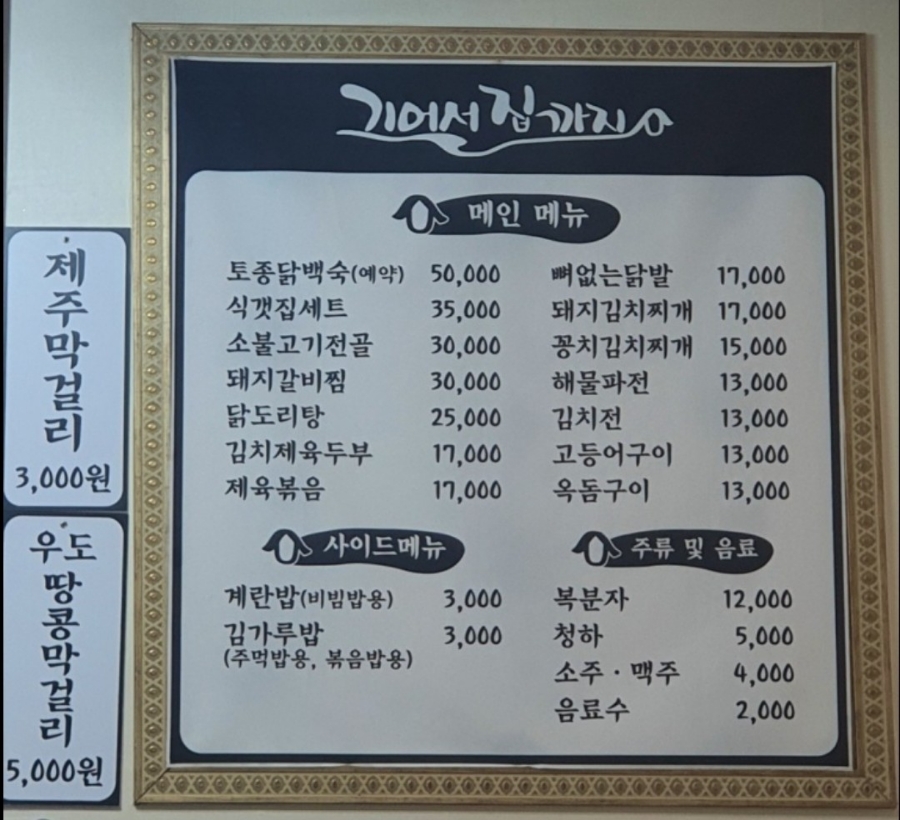 기어서 집까지
메인 메뉴
토종닭백숙(예약) 50,000
식갯집세트 35,000
소불고기전골 30,000
돼지갈비찜 30,000
닭도리탕 25,000
김치제육두부 17,000
제육볶음 17,000
뼈없는닭발 17,000
돼지김치찌개 17,000
꽁치김치찌개 15,000
해물파전 13,000
김치전 13,000
고등어구이 13,000
옥돔구이 13,000
사이드메뉴
계란밥(비빔밥용) 3,000
김가루밥 3,000
(주먹밥용, 볶음밥용)
주류 및 음료
복분자 12,000
청하 5,000
소주 · 맥주 4,000
음료수 2,000
제주막걸리
3,000원
우도
땅콩막걸리
5,000원